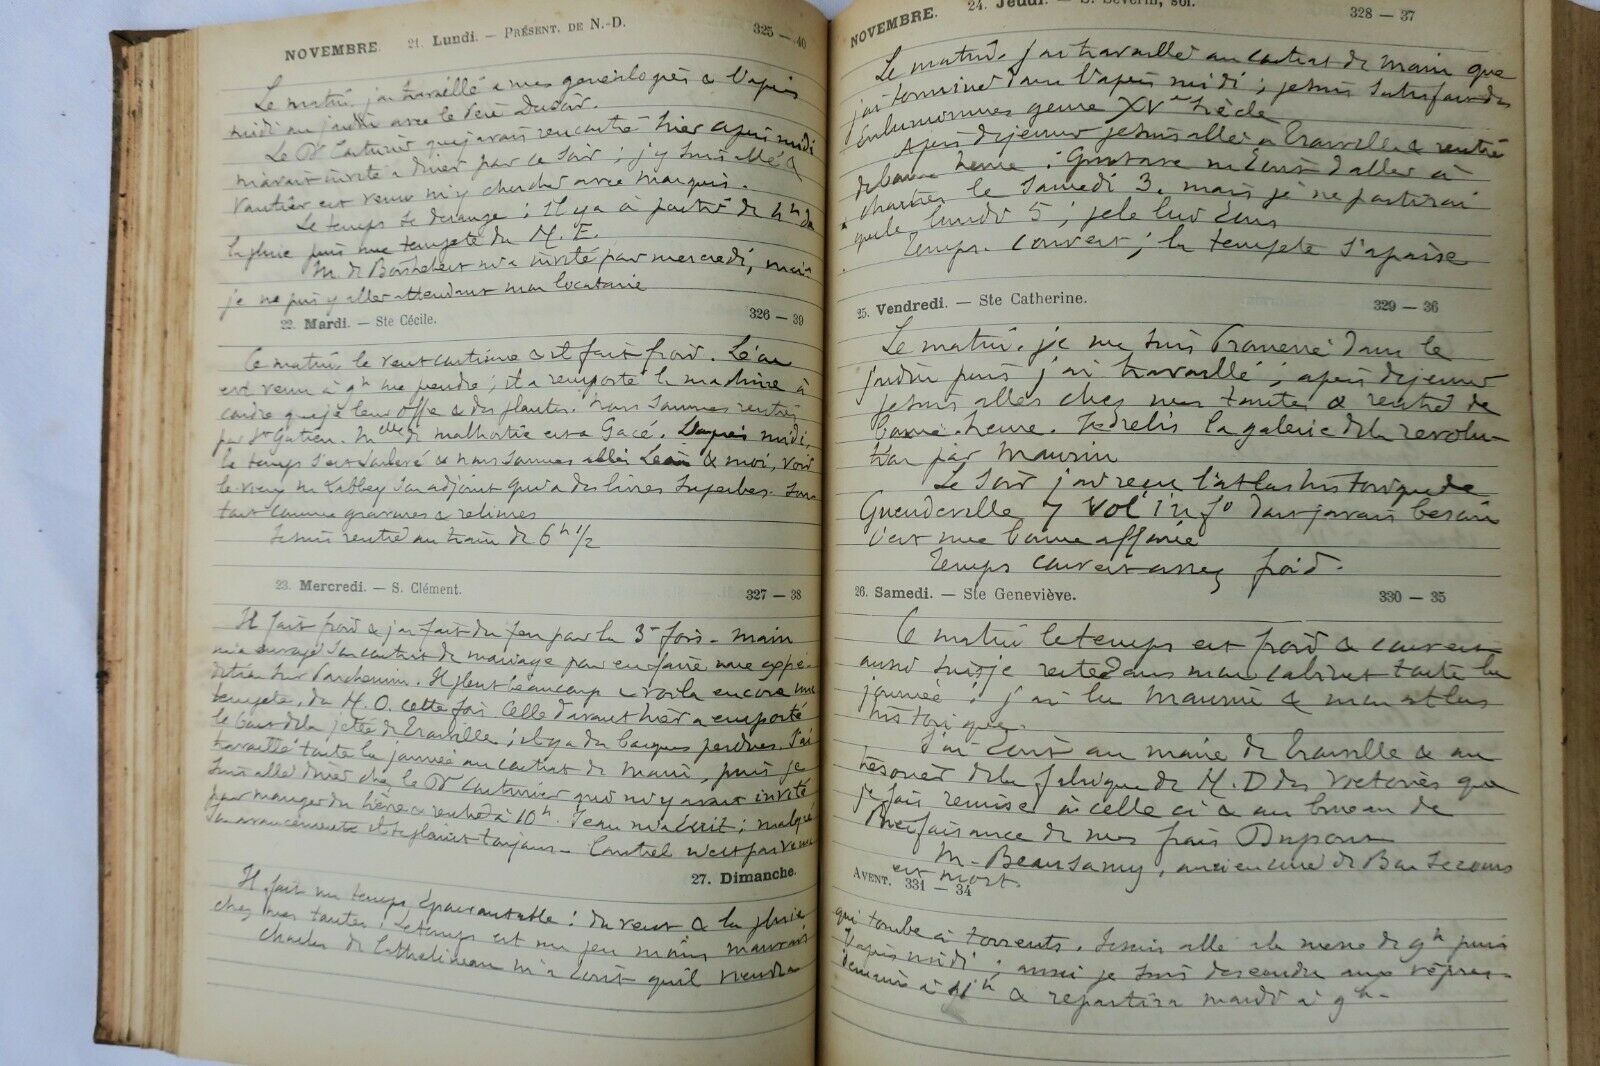 NOVEMBRE. 21. Lundi. — PRÉSENT. DE N.-D. 325 — 40
Le matin, j'ai travaillé a mes généalogies & l'après
midi au jardin avec le Père
Le Dr Couturier que j'avais rencontré hier après midi
m'avait invité a diner par ce soir ; j'y suis allé &
Vautier est venu m'y chercher avec marquis.
Le temps se dérange ; il y a à partir de 4h de
la pluie puis une tempete du N. E.
M. de m'a invité pour mercredi, mais
je ne puis y aller attendant mon locataire
22. Mardi. — Ste Cécile. 326 — 39
Ce matin le vent continue & il fait froid. Léon
est venu à 9h me prendre ; il a remporté la machine à
coudre que je leur offre & des plantes. Nous sommes rentrés
par St Gatien. Melle de malhortie est a Gacé. L'après midi,
le temps s'est & nous sommes allés Léon & moi, voir
le vieux M. Labbey son adjoint qui a des livres superbes. Sur
tout comme gravures & reliures
Je suis rentré au train de 6h 1/2
23. Mercredi. — S. Clément. 327 — 38
Il fait froid & j'ai fait du feu pour la 3e fois. Main
m'a envoyé son contrat de mariage pour en faire une expé-
dition sur Parchemin. Il pleut beaucoup & voila encore une
tempete, du N. O. cette fois. Celle d'avant hier a emporté
le bout de la jetée de Trouville ; il y a des barques perdues. J'ai
travaillé toute la journée au contrat de Main, puis je
suis allé diner chez le Dr Couturier qui m'y avait invité
pour manger du lièvre & rentré à 10h. Jean m'a écrit ; malgré
son avancement il se plaint toujours. n'est pas venu
27. Dimanche.
Il fait un temps épouvantable : du vent & de la pluie
chez mes tantes ; le temps est un peu moins mauvais
Charles de Cathelineau m'a écrit qu'il viendra
NOVEMBRE. 24. Jeudi. — S. Séverin, sol. 328 — 37
Le matin, j'ai travaillé au contrat de Main que
j'ai terminé dans l'après midi ; je suis satisfait des
enluminures genre XVme siècle
Après déjeuner je suis allé à Trouville & rentré
de bonne heure. Gustave m'écrit d'aller à
Chartres le Samedi 3, mais je ne partirai
que le lundi 5 ; je le lui écris
Temps couvert ; la tempete s'apaise
25. Vendredi. — Ste Catherine. 329 — 36
Le matin, je me suis Promené dans le
jardin puis j'ai travaillé ; après déjeuner
je suis allé chez mes tantes & rentré de
bonne heure. Je relis la galerie de la révolu-
tion par Maurin
Le soir j'ai reçu l'atlas historique de
Gueudeville 7 vol in fo dont j'avais besoin
c'est une bonne affaire
Temps couvert assez froid.
26. Samedi. — Ste Geneviève. 330 — 35
Ce matin le temps est froid & couvert
aussi suis je resté dans mon cabinet toute la
journée ; j'ai lu Maurin & mon atlas
historique.
J'ai écrit au maire de Trouville & au
trésorier de la fabrique de N. D des Victoires que
je fais remise à celle ci & au bureau de
Bienfaisance de mes frais Dupont
M. Beausamy, ancien curé de Bon Secours
est mort.
AVENT. 331 — 34
qui tombe à torrents. Je suis allé à la messe de 9h puis
l'après midi ; aussi je suis descendu aux vépres.
demain à 11h & repartira mardi à 9h.